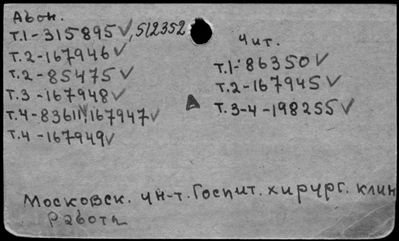 Абон.
т.1-315895√, 512352
т.2-167946√
т.2-85475√
т.3-167948√
т.4-83611, 167947√
т.4-167949√
Чит.
т.1-86350√
т.2-167945√
т.3-4-198255√
Московск. ун-т. Госпит. хирург. клин
Работы